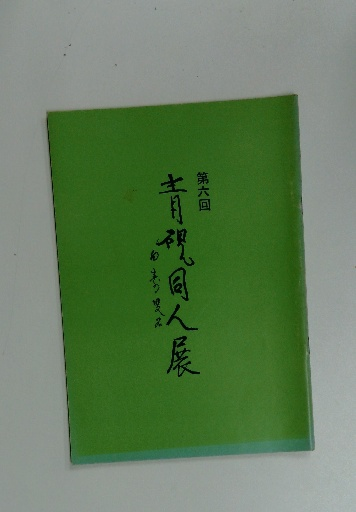 第六回
青硯同人展